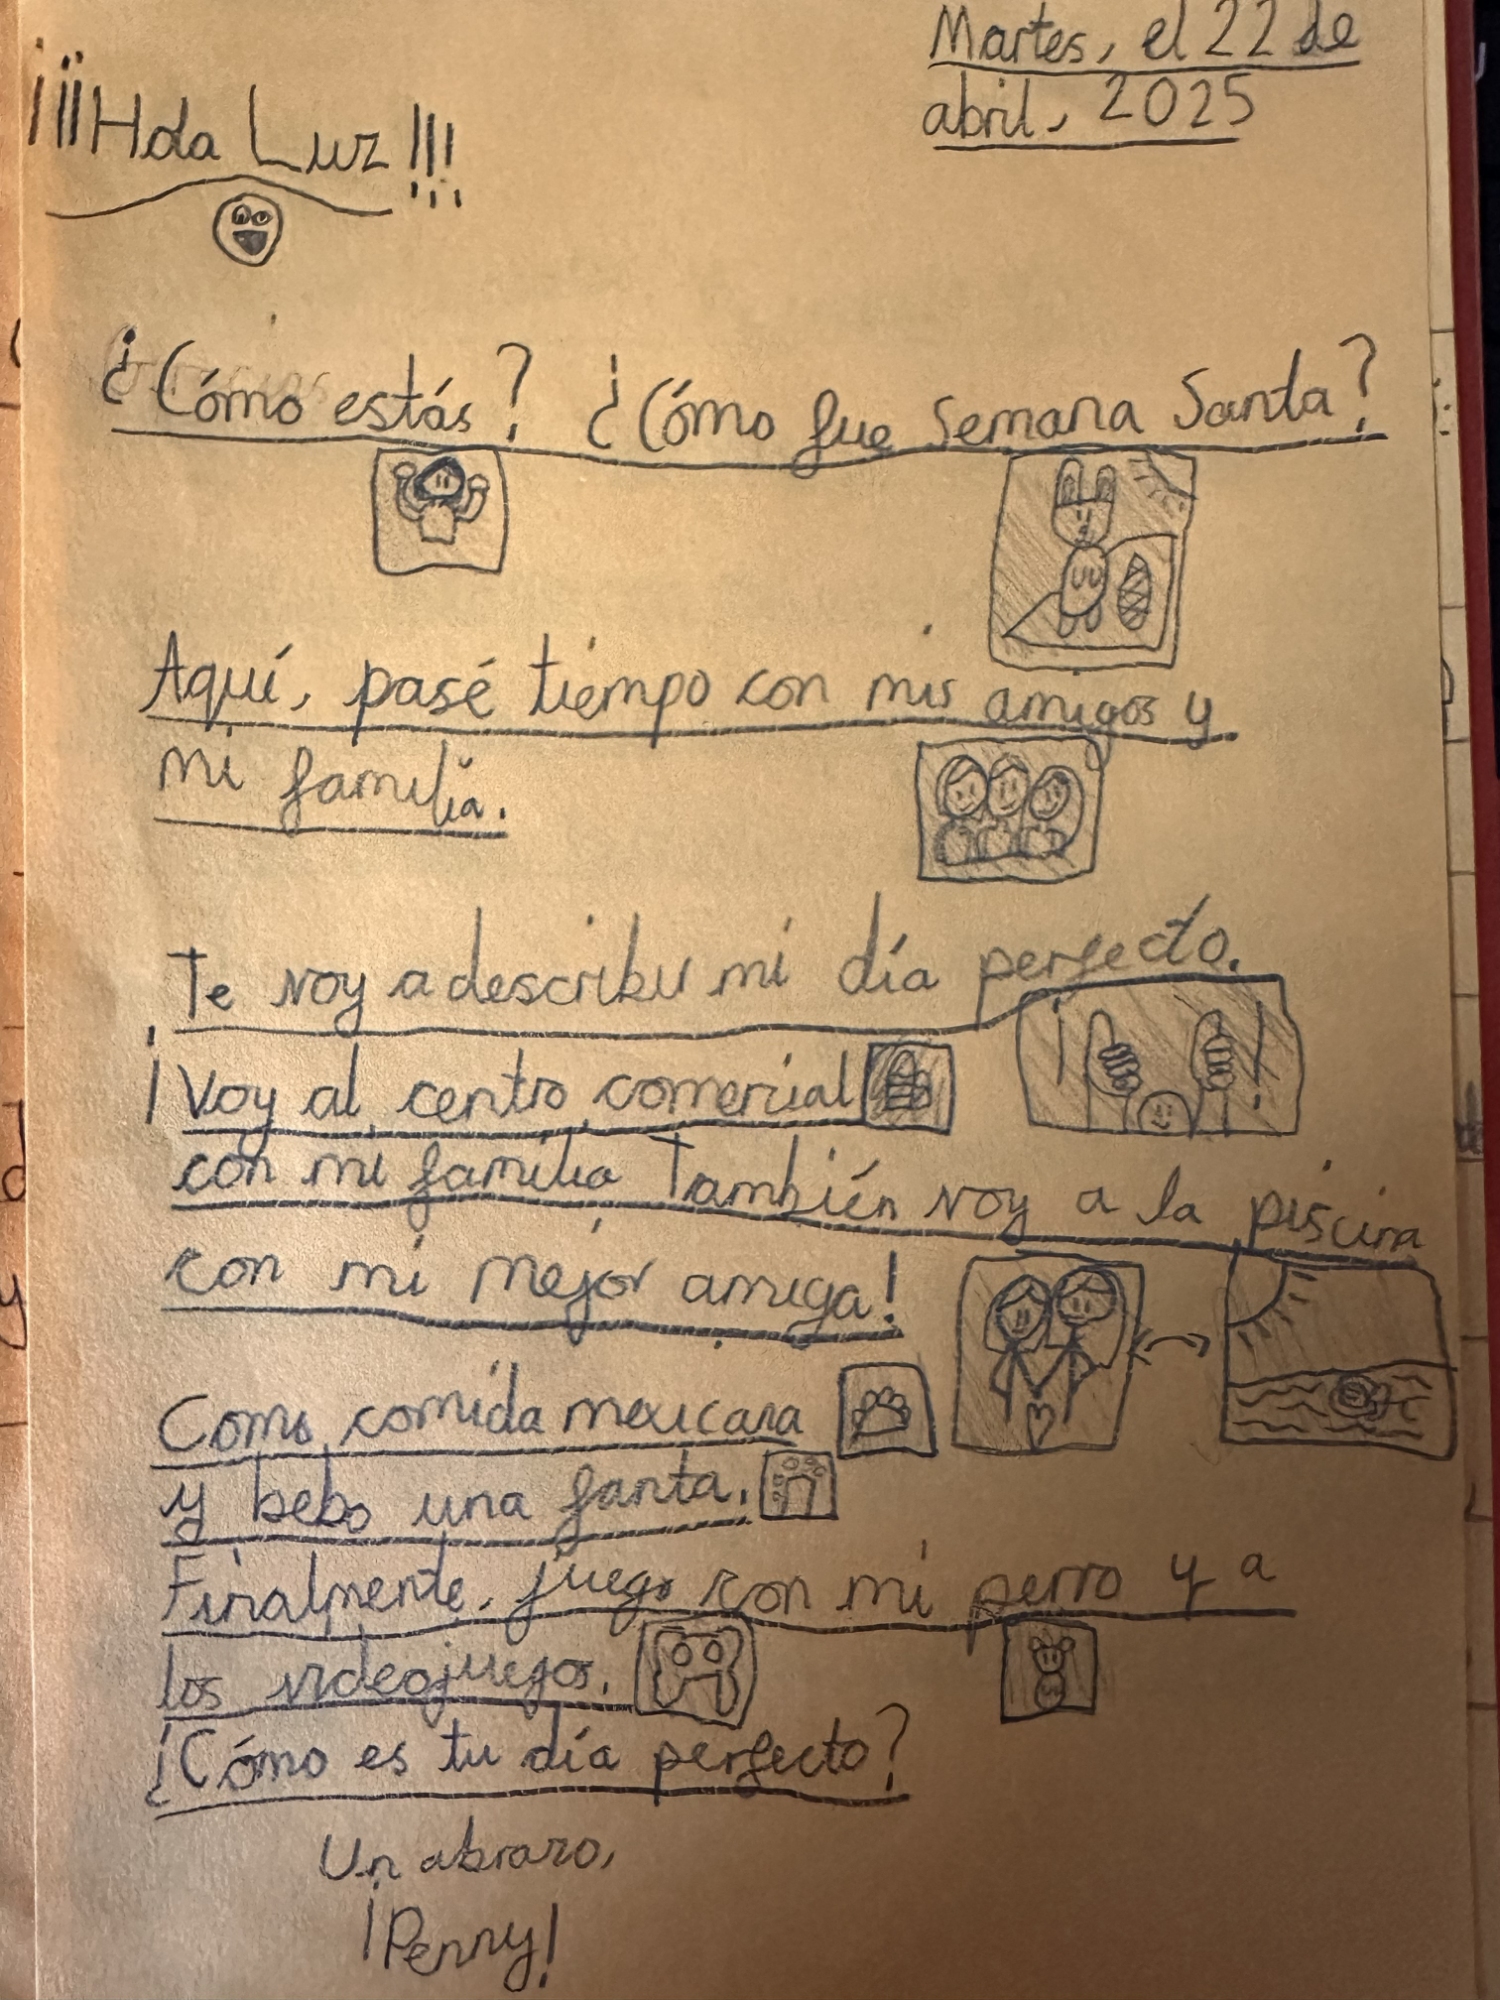 Martes, el 22 de
abril, 2025
¡¡¡Hola Luz!!!
¿Cómo estás? ¿Cómo fue Semana Santa?
Aquí, pasé tiempo con mis amigos y
mi familia.
Te voy a describir mi día perfecto.
¡Voy al centro comercial
con mi familia También voy a la piscina
con mi mejor amiga!
Como comida mexicana
y bebo una fanta.
Finalmente, juego con mi perro y a
los videojuegos.
¿Cómo es tu día perfecto?
Un abrazo,
¡Penny!